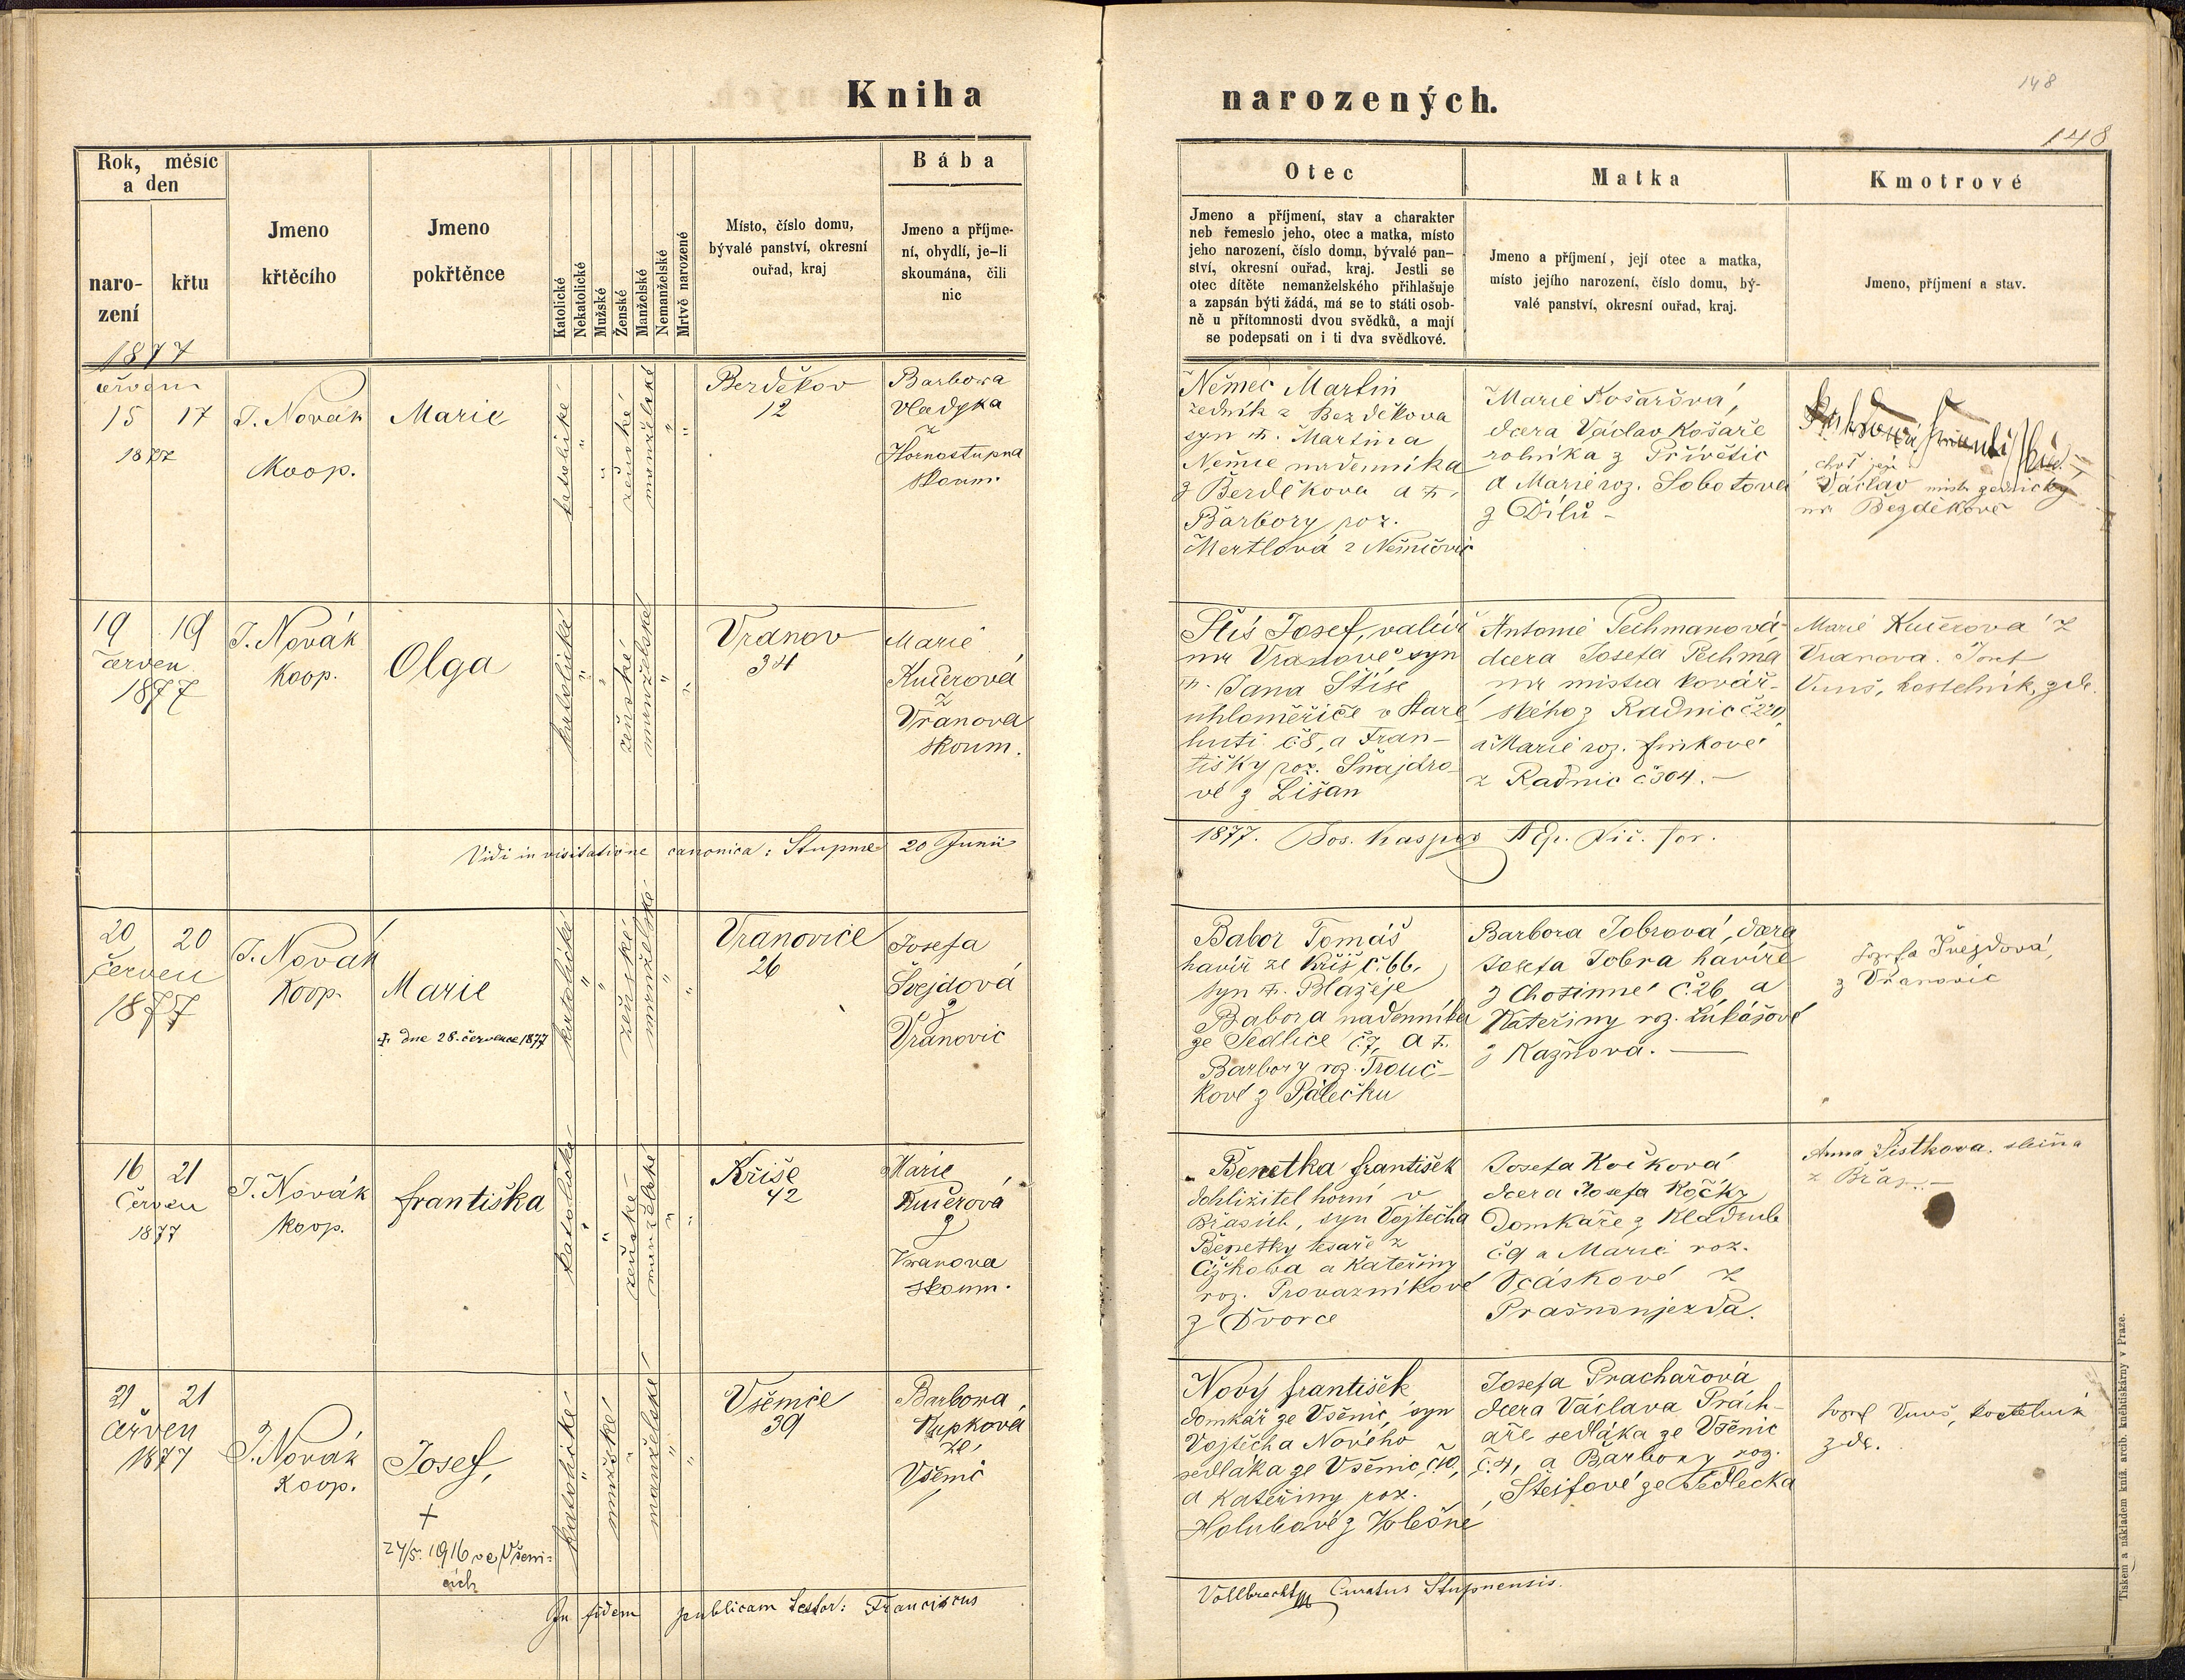 Kniha narozených.
148
148
Rok, měsíc a den
naro-
zení
křtu
Jmeno
křtěcího
Jmeno
pokřtěnce
Katolické
Nekatolické
Mužské
Ženské
Manželské
Nemanželské
Mrtvě narozené
Místo, číslo domu,
bývalé panství, okresní
ouřad, kraj
Bába
Jmeno a příjme-
ní, obydlí, je-li
skoumána, čili
nic
Otec
Jmeno a příjmení, stav a charakter
neb řemeslo jeho, otec a matka, místo
jeho narození, číslo domu, bývalé pan-
ství, okresní ouřad, kraj. Jestli se
otec dítěte nemanželského přihlašuje
a zapsán býti žádá, má se to státi osob-
ně u přítomnosti dvou svědků, a mají
se podepsati on i ti dva svědkové.
Matka
Jmeno a příjmení, její otec a matka,
místo jejího narození, číslo domu, bý-
valé panství, okresní ouřad, kraj.
Kmotrové
Jmeno, příjmení a stav.
1877
červen
15 17
1877
J. Novák
Koop.
Marie
katolické
ženské
manželské
Berděkov
12
Barbora
Vladyka
z
Hornostupna
skoum.
Němec Martin
zedník z Bezděkova
syn †. Martina
Němce nádenníka
z Berděkova a †.
Barbory roz.
Mertlová z Němčovic
Marie Košařová,
dcera Václav Košaře
rolníka z Přívětic
a Marie roz. Sobotova
z Dílů -
choť její
Václav mistr zednický
na Bezděkově
19 19
červen
1877
J. Novák
Koop.
Olga
katolické
ženské
manželské
Vranov
34
Marie
Kučerová
z
Vranova
skoum.
Štis Josef, válcíř
na Vranově syn
†. Jana Štise
uhloměřiče v Staré
huti č 8, a Fran-
tišky roz. Šnajdro-
vé z Lišan
Antonie Pechmanová
dcera Josefa Pechma
na mistra kovář-
ského z Radnic č 220,
a Marie roz. Finkové
z Radnic č 304. -
Marie Kučerova z
Vranova. Josef
Vunš, kostelník, zde.
Vidi in visitatione canonica: Stupna 20 Junii
1877. Jos. Kaspar A Ep. Vic. for.
20 20
červen
1877
J. Novák
Koop.
Marie
† dne 28. července 1877
katolické
ženské
manželské
Vranovice
26
Josefa
Švejdová
z
Vranovic
Babor Tomáš
havíř ze Kříš č. 66.
syn †. Blažeje
Babora nadenníka
ze Sedlice č 7, a †.
Barbory roz. Trouč-
kové z Pálečku
Barbora Tobrová, dcera
Josefa Tobra havíře
z Chotinné č. 26, a
Kateřiny roz. Lukášové
z Kaznova. -
Jozefa Švejdová,
z Vranovic
16 21
Červen
1877
J. Novák
koop.
františka
katolické
ženské
manželské
Kříše
42
Marie
Kučerová
z
Vranova
skoum.
Benetka františek
dohližitel horní v
Břasích, syn Vojtěcha
Benetky tesaře z
Čižkova a Kateřiny
roz. Provazníkové
z Dvorce
Josefa Kočková
dcera Josefa Kočky
Domkáře z Kladrub
č. 9 a Marie roz.
Vcáskové z
Prašnonjezda.
Anna Šistkova, slečna
z Břas. -
21 21
červen
1877
J. Novák
Koop.
Josef,
+
24/5. 1916 ve Všeni-
cích
katolické
mužské
manželské
Všenice
39
Barbora
Kupková
ze
Všenic
Nový františek
domkář ze Všenic, syn
Vojtěcha Nového
sedláka ze Všenic č. 10,
a Kateřiny roz.
Holubové z Volešné
Josefa Prachařová
dcera Václava Prách-
aře sedláka ze Všenic
č. 4, a Barbory roz.
Šteifové ze Sedlecka
Jozef Vunš, kostelník
zde.
In fidem publicam testor: Franciscus
Vollbrecht Curatus Stupnensis.
Tiskem a nákladem kníž. arcib. knihtiskárny v Praze.